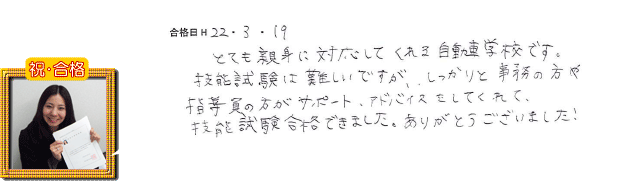 合格日 H 22・3・19
祝・合格
とても親身に対応してくれる自動車学校です。
技能試験は難しいですが、しっかりと事務の方や
指導員の方がサポート、アドバイスをしてくれて、
技能試験合格できました。ありがとうございました！